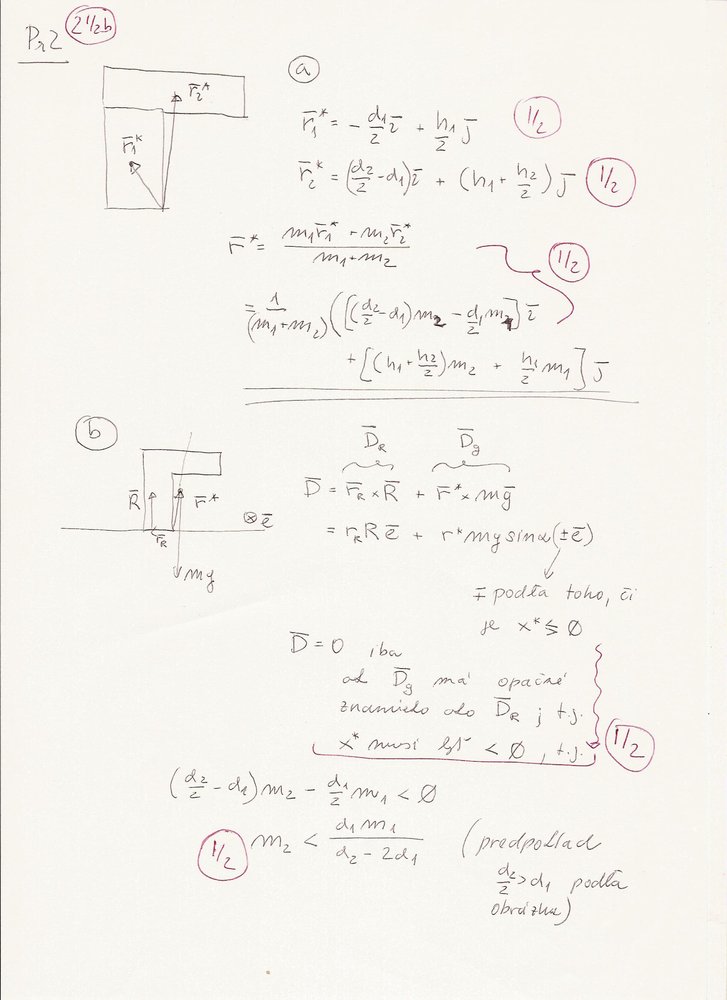 Pr2 2 1/2b
a
r̄₂*
r̄₁*
r̄₁* = - d₁/2 ī + h₁/2 j̄ 1/2
r̄₂* = (d₂/2 - d₁) ī + (h₁ + h₂/2) j̄ 1/2
r̄* = (m₁r̄₁* + m₂r̄₂*)/(m₁+m₂) 1/2
= 1/(m₁+m₂) ([(d₂/2 - d₁)m₂ - d₁/2 m₁] ī
+ [(h₁ + h₂/2)m₂ + h₁/2 m₁] j̄
b
D̄_R D̄_g
D̄ = r̄_R × R̄ + r̄* × mḡ
R̄ r̄* ⊗ ē
r̄_R
mg
= r_R R ē + r* mg sinα (±ē)
∓ podľa toho, či
je x* ≶ Ø
D̄ = 0 iba
ak D̄_g má opačné
znamienko ako D̄_R, t.j.
x* musí byť < Ø, t.j. 1/2
(d₂/2 - d₁)m₂ - d₁/2 m₁ < Ø
1/2 m₂ < d₁m₁/(d₂ - 2d₁) (predpoklad
d₂/2 > d₁ podľa
obrázka)